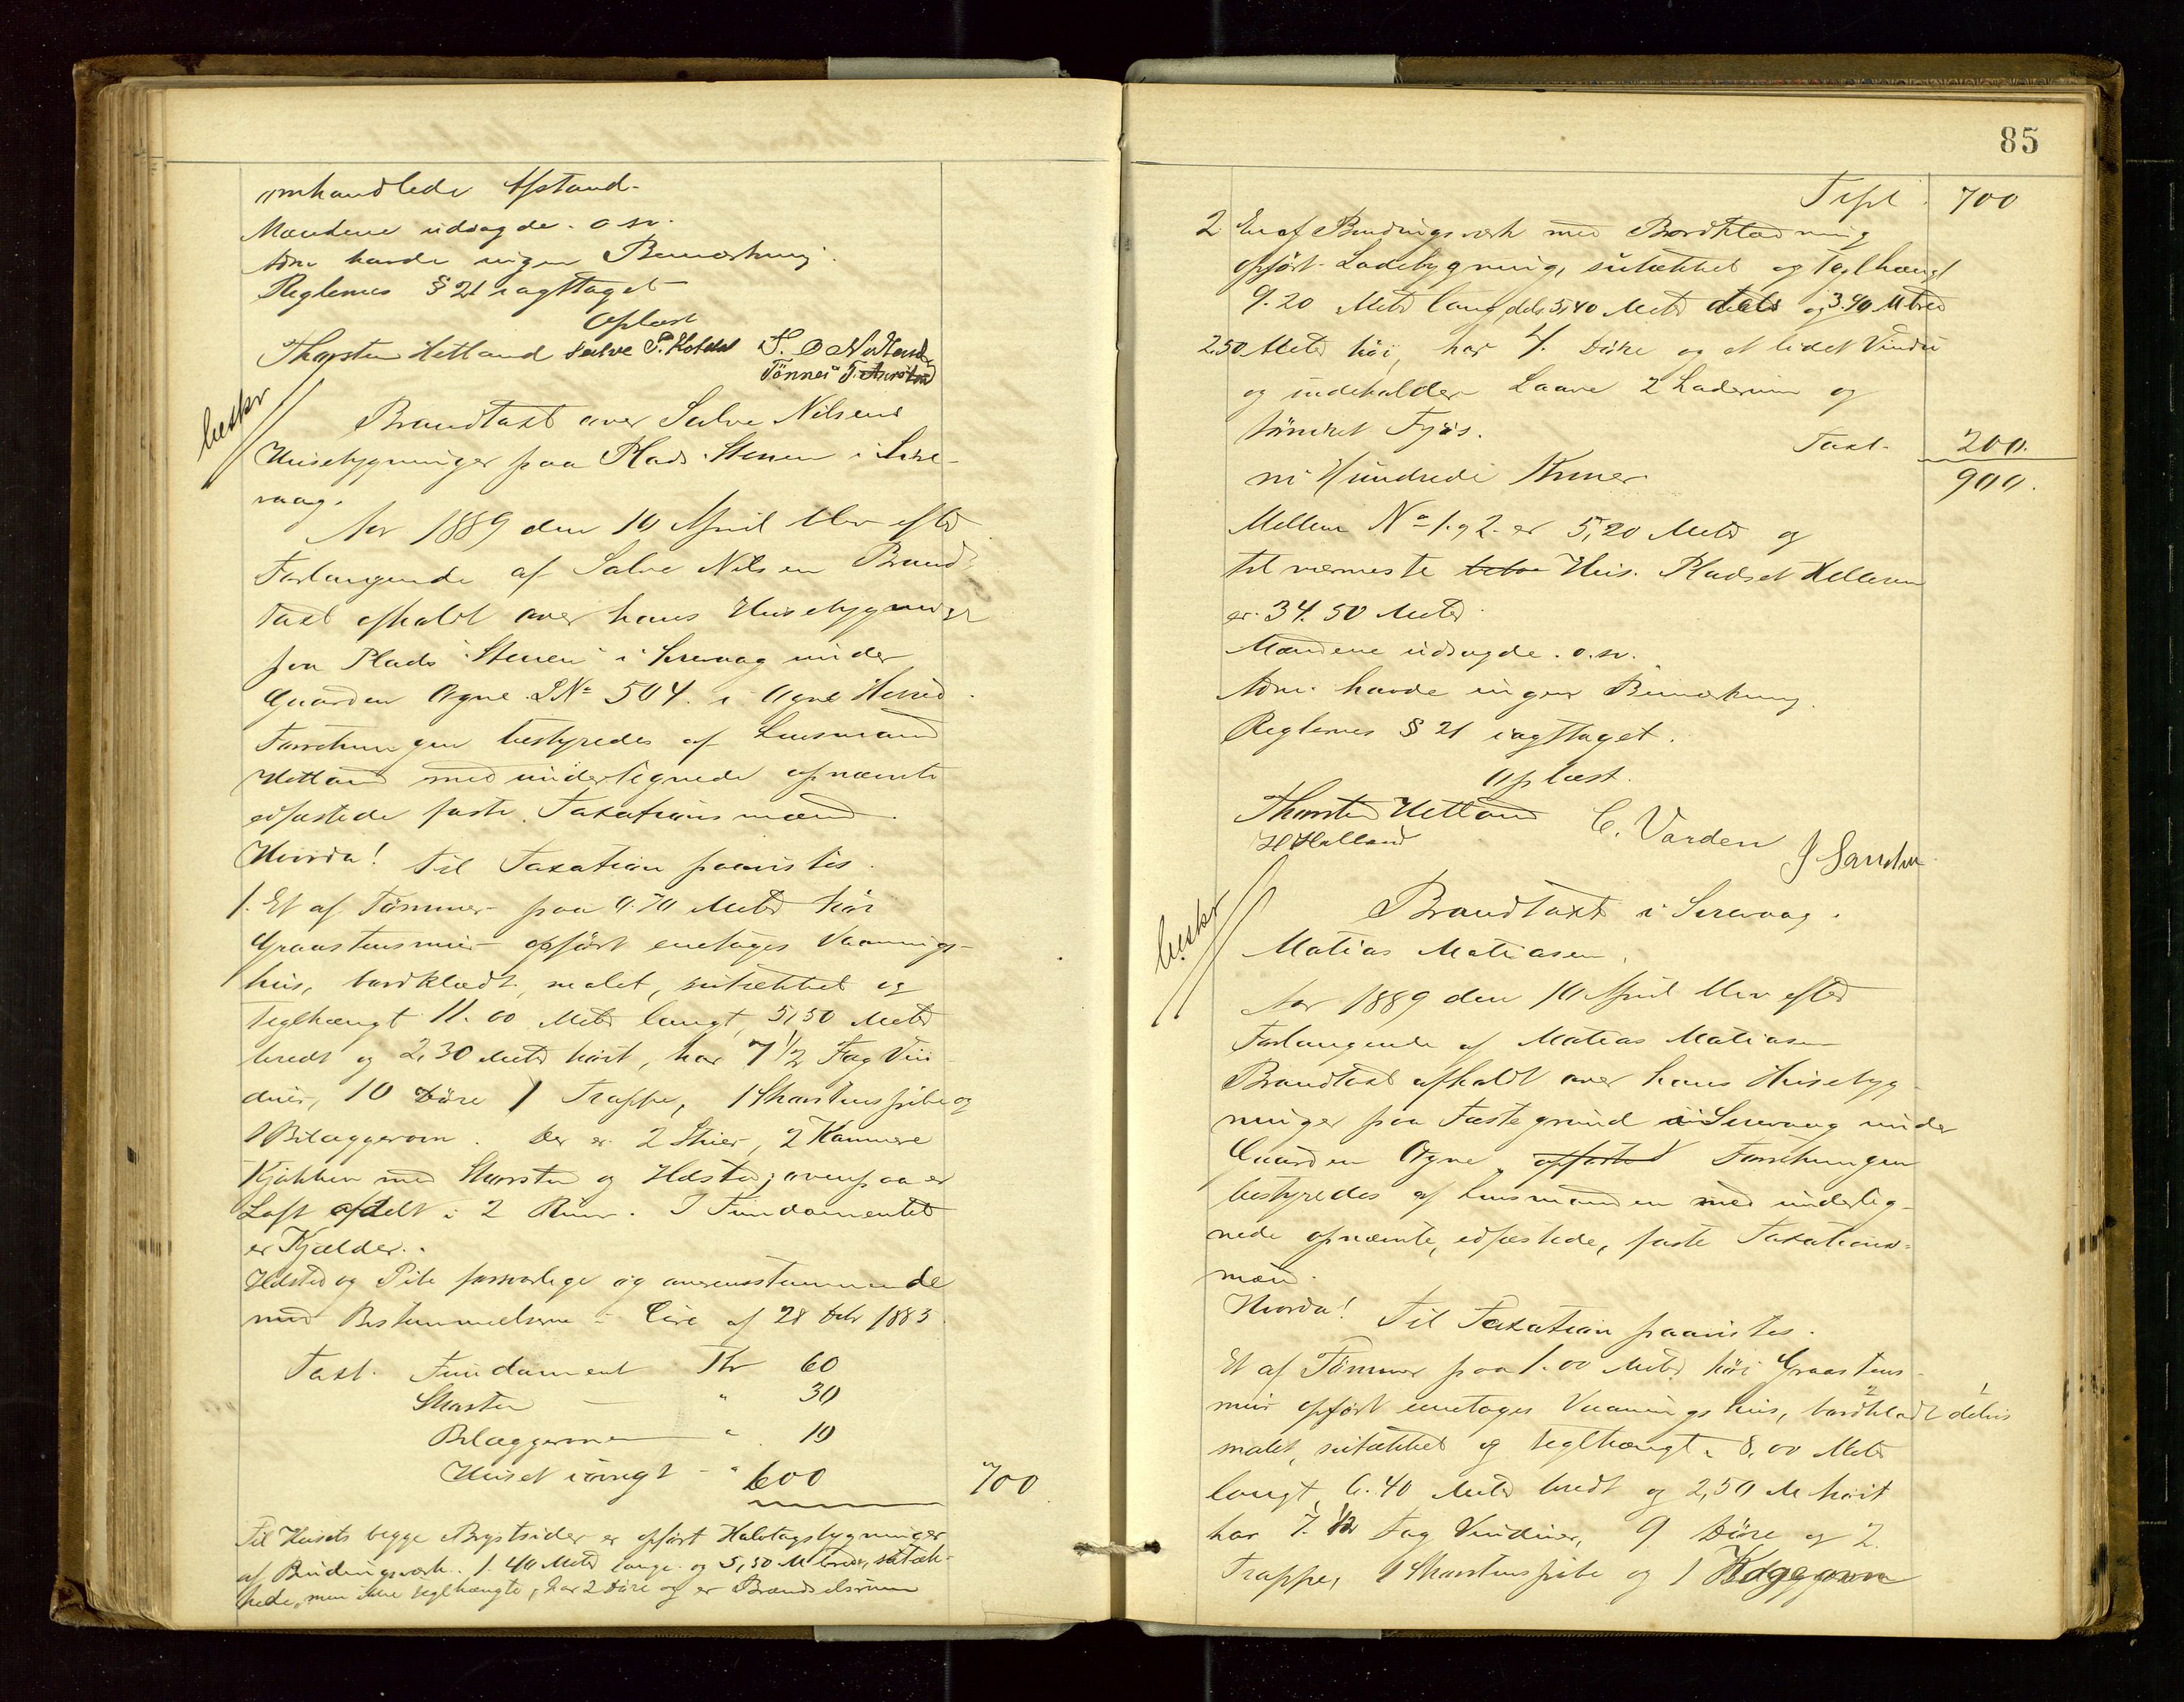 omhandlede Afstand.
Mændene udsagde. o. sv.
Adm. havde ingen Bemærkning.
Reglernes § 21 iagttaget
Oplæst
Thorsten Hetland Salve P.
Tønnes T.
beskr
Brandtaxt over Salve Nilsens
Husebygninger paa Plads. Stenen i Sire-
vaag.
Aar 1889 den 10 April blev efter
Forlangende af Salve Nilsen Brand-
taxt afholdt over hans Husebygninger
paa Plads "Stenen" i Sirevaag under
Gaarden Ogne LNo 504. i Ogne Herred.
Forretningen bestyredes af Lensmand
Hetland med undertegnede opnævnte
edfæstede faste Taxationsmænd.
Hvorda! Til Taxation paavistes.
1. Et af Tømmer paa 0.70 Meter høi
Graastensmur opført enetages Vaanings-
hus, bordklædt, malet, sutækket og
Teglhængt 11.00 Meter langt, 5,50 Meter
bredt og 2,30 Meter høit, har 7 1/2 Fag Vin-
duer, 10 Døre 1 Trappe, 1 Skorstenspibe og
1 Bilæggerovn. Der er 2 Stuer, 2 Kammere
Kjøkken med Skorsten og Ildsted; ovenpaa er
Loft afdelt i 2 Rum. I Fundamentet
er Kjælder.
Ildsted og Pibe forsvarlige og overensstemmende
med Bestemmelserne i Circ af 28 Debr 1883.
Taxt. Fundament Kr 60
Skorsten " 30
Bilæggerovn " 10
Huset iøvrigt - " 600 700
Til Husets begge Brystsider er opført Halvtagsbygninger
af Bindingsverk. 1.40 Meter lange og 5,50 M brede, sutæk-
kede, men ikke teglhængte, har 2 Døre og er Brændselsrum
85
Trspt. 700
2 En af Bindingsverk med Bordklædning
opført Ladebygning, sutækket og Teglhængt
9.20 Meter lang, dels 5,40 Meter dels og 3.90 M bred
2.50 Meter høi, har 4. Døre og et lidet Vindu
og indeholder Laave 2 Laderum og
tømret Fjøs. Taxt. 200.
ni Hundrede Kroner 900.
Mellem No 1. og 2. er 5,20 Meter og
til nærmeste Hus. Pladset Helleren
er 34.50 Meter.
Mændene udsagde. o. sv.
Adm. havde ingen Bemærkning.
Reglernes § 21 iagttaget.
Oplæst.
Thorsten Hetland C. Varden
beskr
Brandtaxt i Sirevaag.
Matias Matiasen.
Aar 1889 den 10 April blev efter
Forlangende af Matias Matiasen
Brandtaxt afholdt over hans Husebyg-
ninger paa Fæstegrund i Sirevaag under
Gaarden Ogne, Forretningen
bestyredes af Lensmanden med underteg-
nede opnævnte, edfæstede, faste Taxations-
mænd.
Hvorda! Til Taxation paavistes.
Et af Tømmer paa 1.00 Meter høi Graastens-
mur opført enetages Vaaningshus, bordklædt delvis
malet, sutækket og teglhængt. 8,00 Meter
langt, 6.40 Meter bredt og 2,50 M høit
har 7. 1/2 Fag Vinduer, 9 Døre og 2
Trapper, 1 Skorstenspibe og 1 Kogeovn